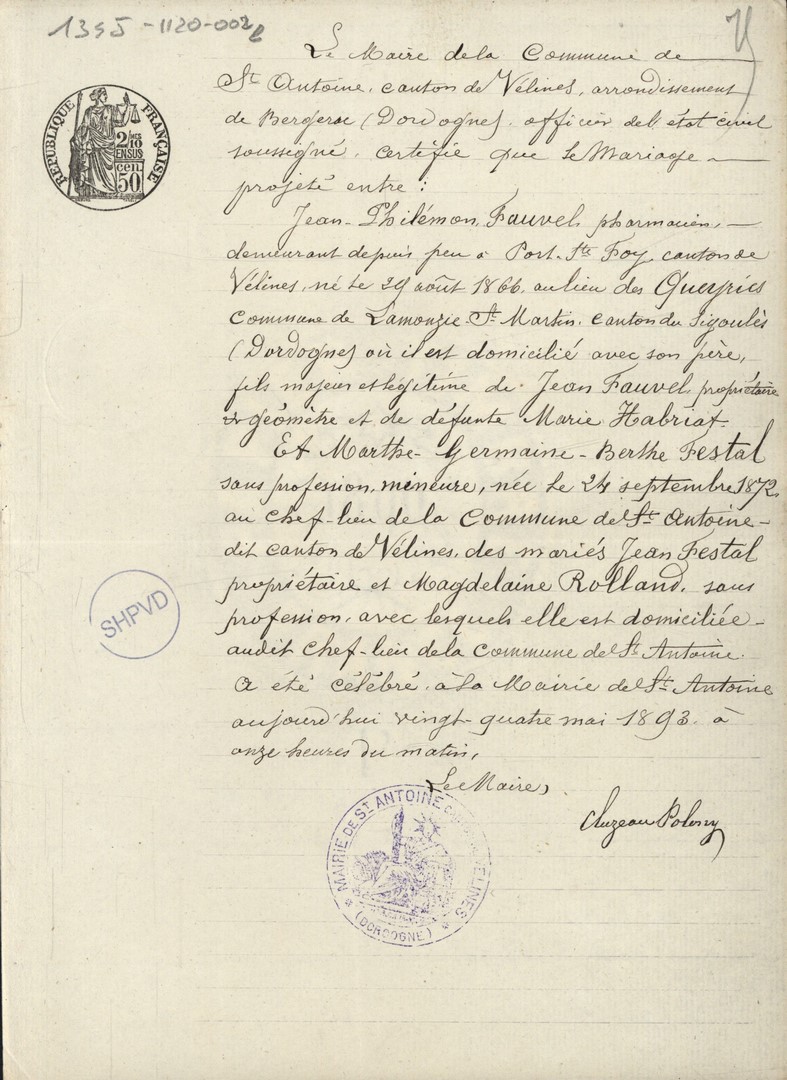 1395-1120-002
Le Maire de la Commune de
St Antoine, canton de Vélines, arrondissement
de Bergerac (Dordogne), officier de l'état civil
soussigné, certifie que le Mariage
projeté entre :
Jean-Philémon Fauvel, pharmacien,
demeurant depuis peu à Port-Ste Foy, canton de
Vélines, né le 29 août 1866, au lieu des Queyries
Commune de Lamonzie-St Martin, canton du Sigoulès
(Dordogne) où il est domicilié avec son père,
fils majeur et légitime de Jean Fauvel, propriétaire
géomètre et de défunte Marie Habriat.
Et Marthe-Germaine-Berthe Festal
sans profession, mineure, née le 24 septembre 1872,
au chef-lieu de la Commune de St Antoine-
dit canton de Vélines, des mariés Jean Festal
propriétaire et Magdelaine Rolland, sans
profession, avec lesquels elle est domiciliée
audit chef-lieu de la Commune de St Antoine.
A été célébré à la Mairie de St Antoine
aujourd'hui vingt-quatre mai 1893, à
onze heures du matin,
Le Maire,
RÉPUBLIQUE FRANÇAISE
2/10 MES
EN SUS
50 cen
SHPVD
MAIRIE DE ST ANTOINE VÉLINES
(DORDOGNE)